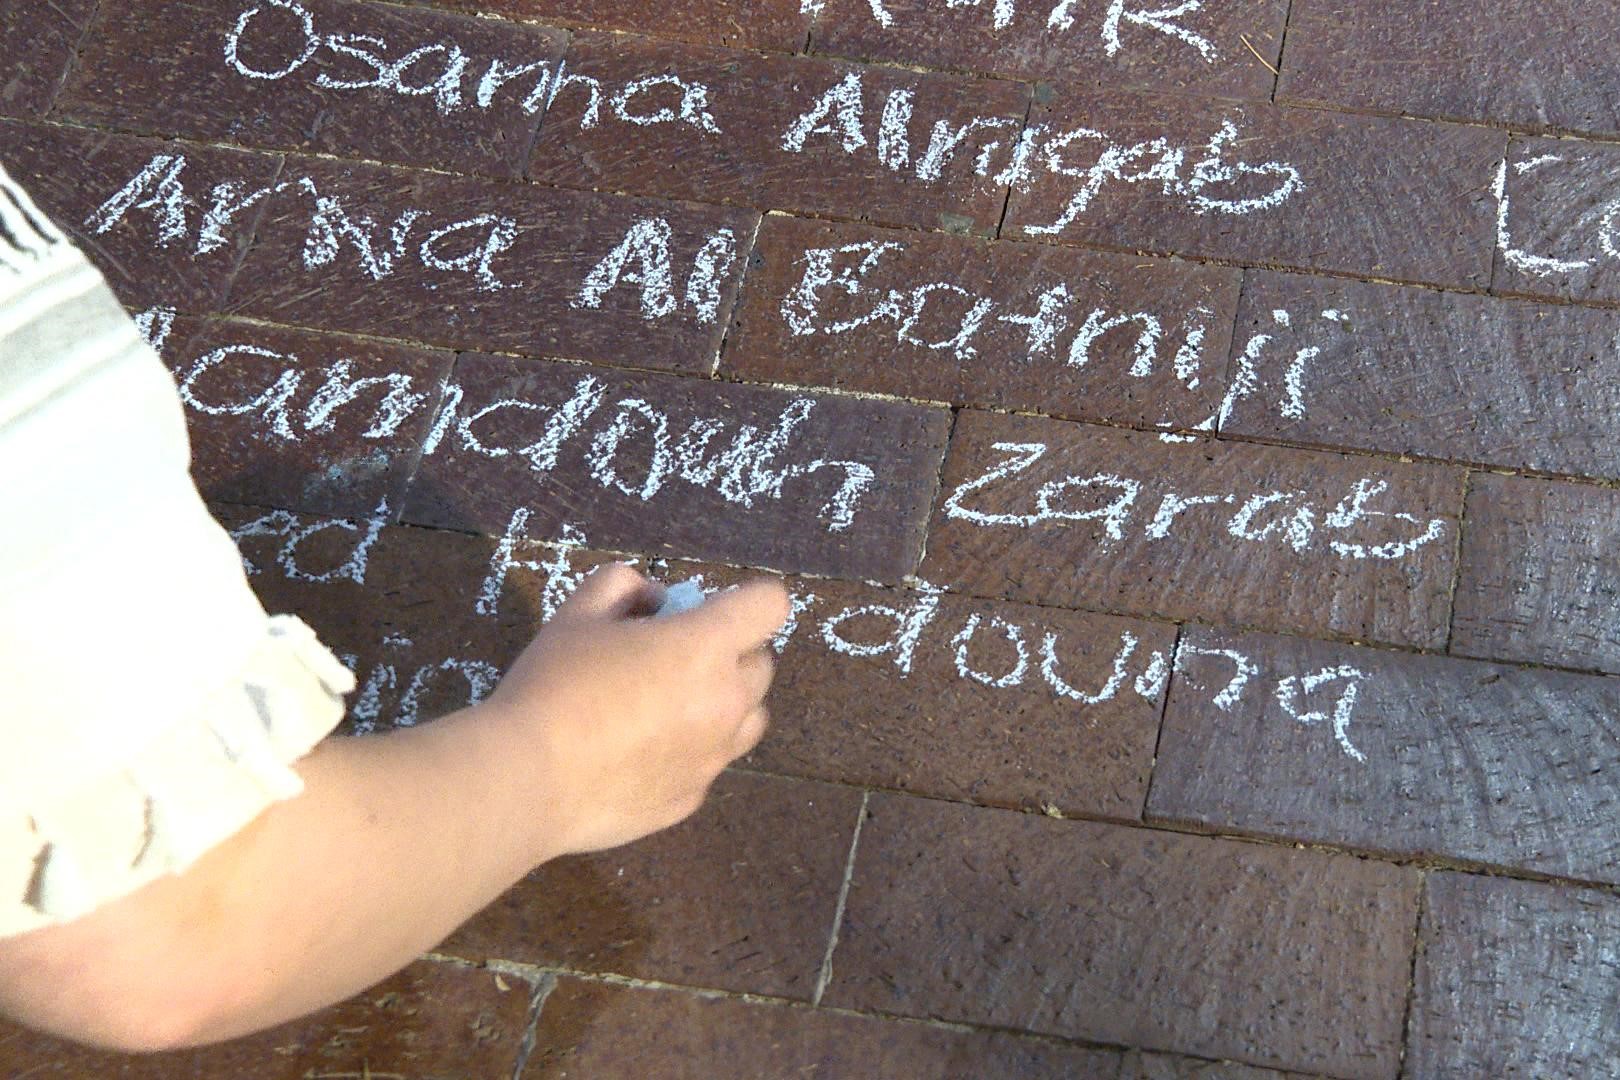 Osama Alrigab
Arwa Al Eatmiji
Mamdouh Zarab
Handouna